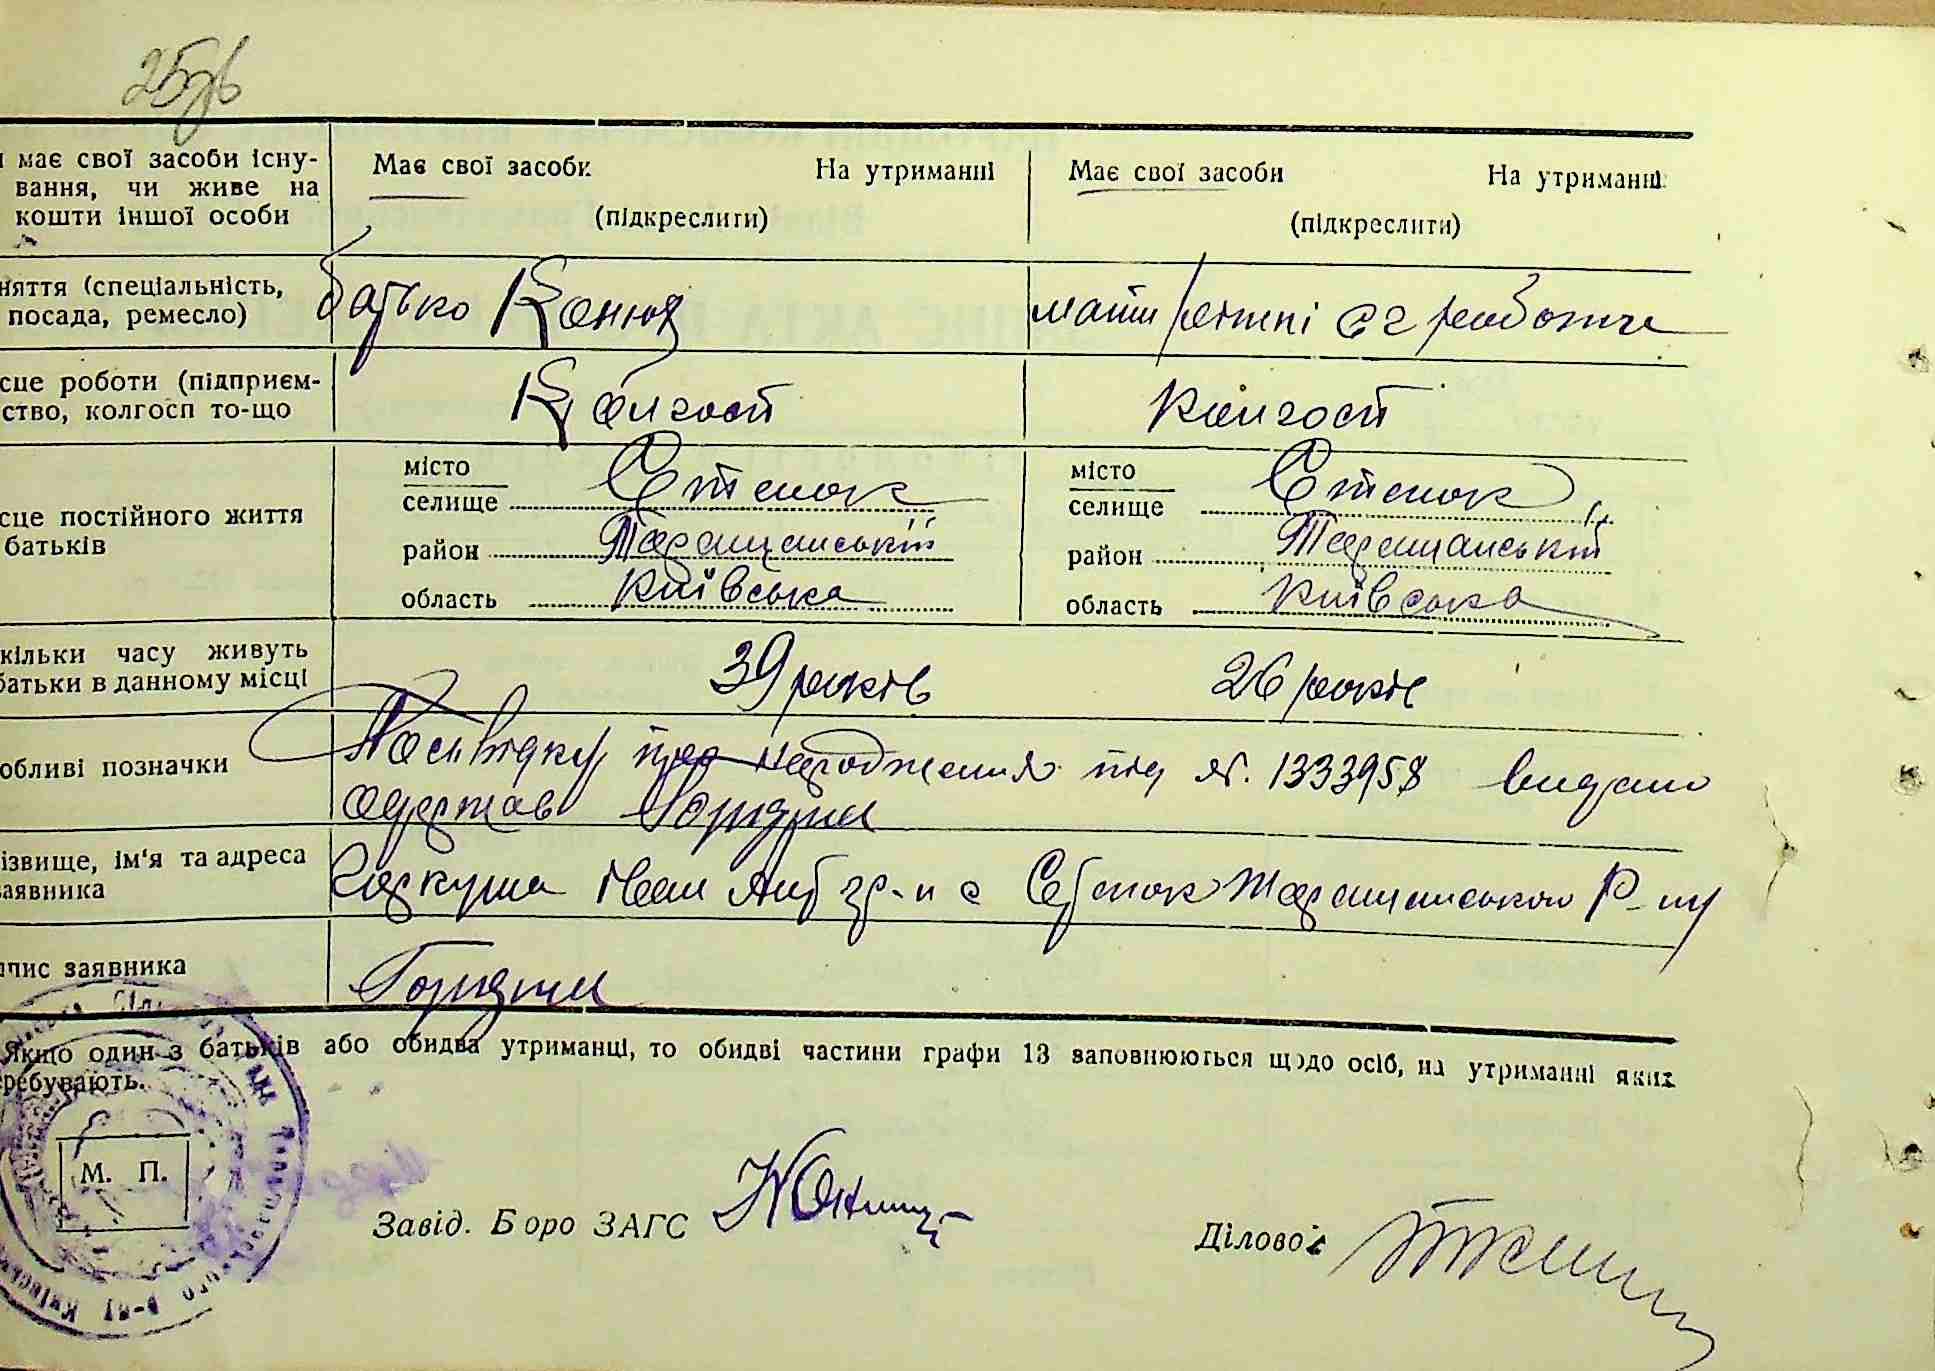 25зв
має свої засоби існу-
вання, чи живе на
кошти іншої особи
Має свої засоби На утриманні
(підкреслити)
Має свої засоби На утриманні
(підкреслити)
няття (спеціальність,
посада, ремесло)
батько Конюх
мати
сце роботи (підприєм-
ство, колгосп то-що
Колгосп
колгосп
сце постійного життя
батьків
місто
селище Стенок
район Таращанський
область Київська
місто
селище Стенок
район Таращанський
область Київська
кільки часу живуть
батьки в данному місці
39 років
26 років
обливі позначки
Посвідку про народження під №. 1333958 видано
одержав
ізвище, ім'я та адреса
заявника
Іван с Стенок Таращанського Р-ну
пис заявника
Якщо один з батьків або обидва утриманці, то обидві частини графи 13 заповнюються щодо осіб, на утриманні яких
еребувають.
М. П.
Завід. Бюро ЗАГС
Діловод